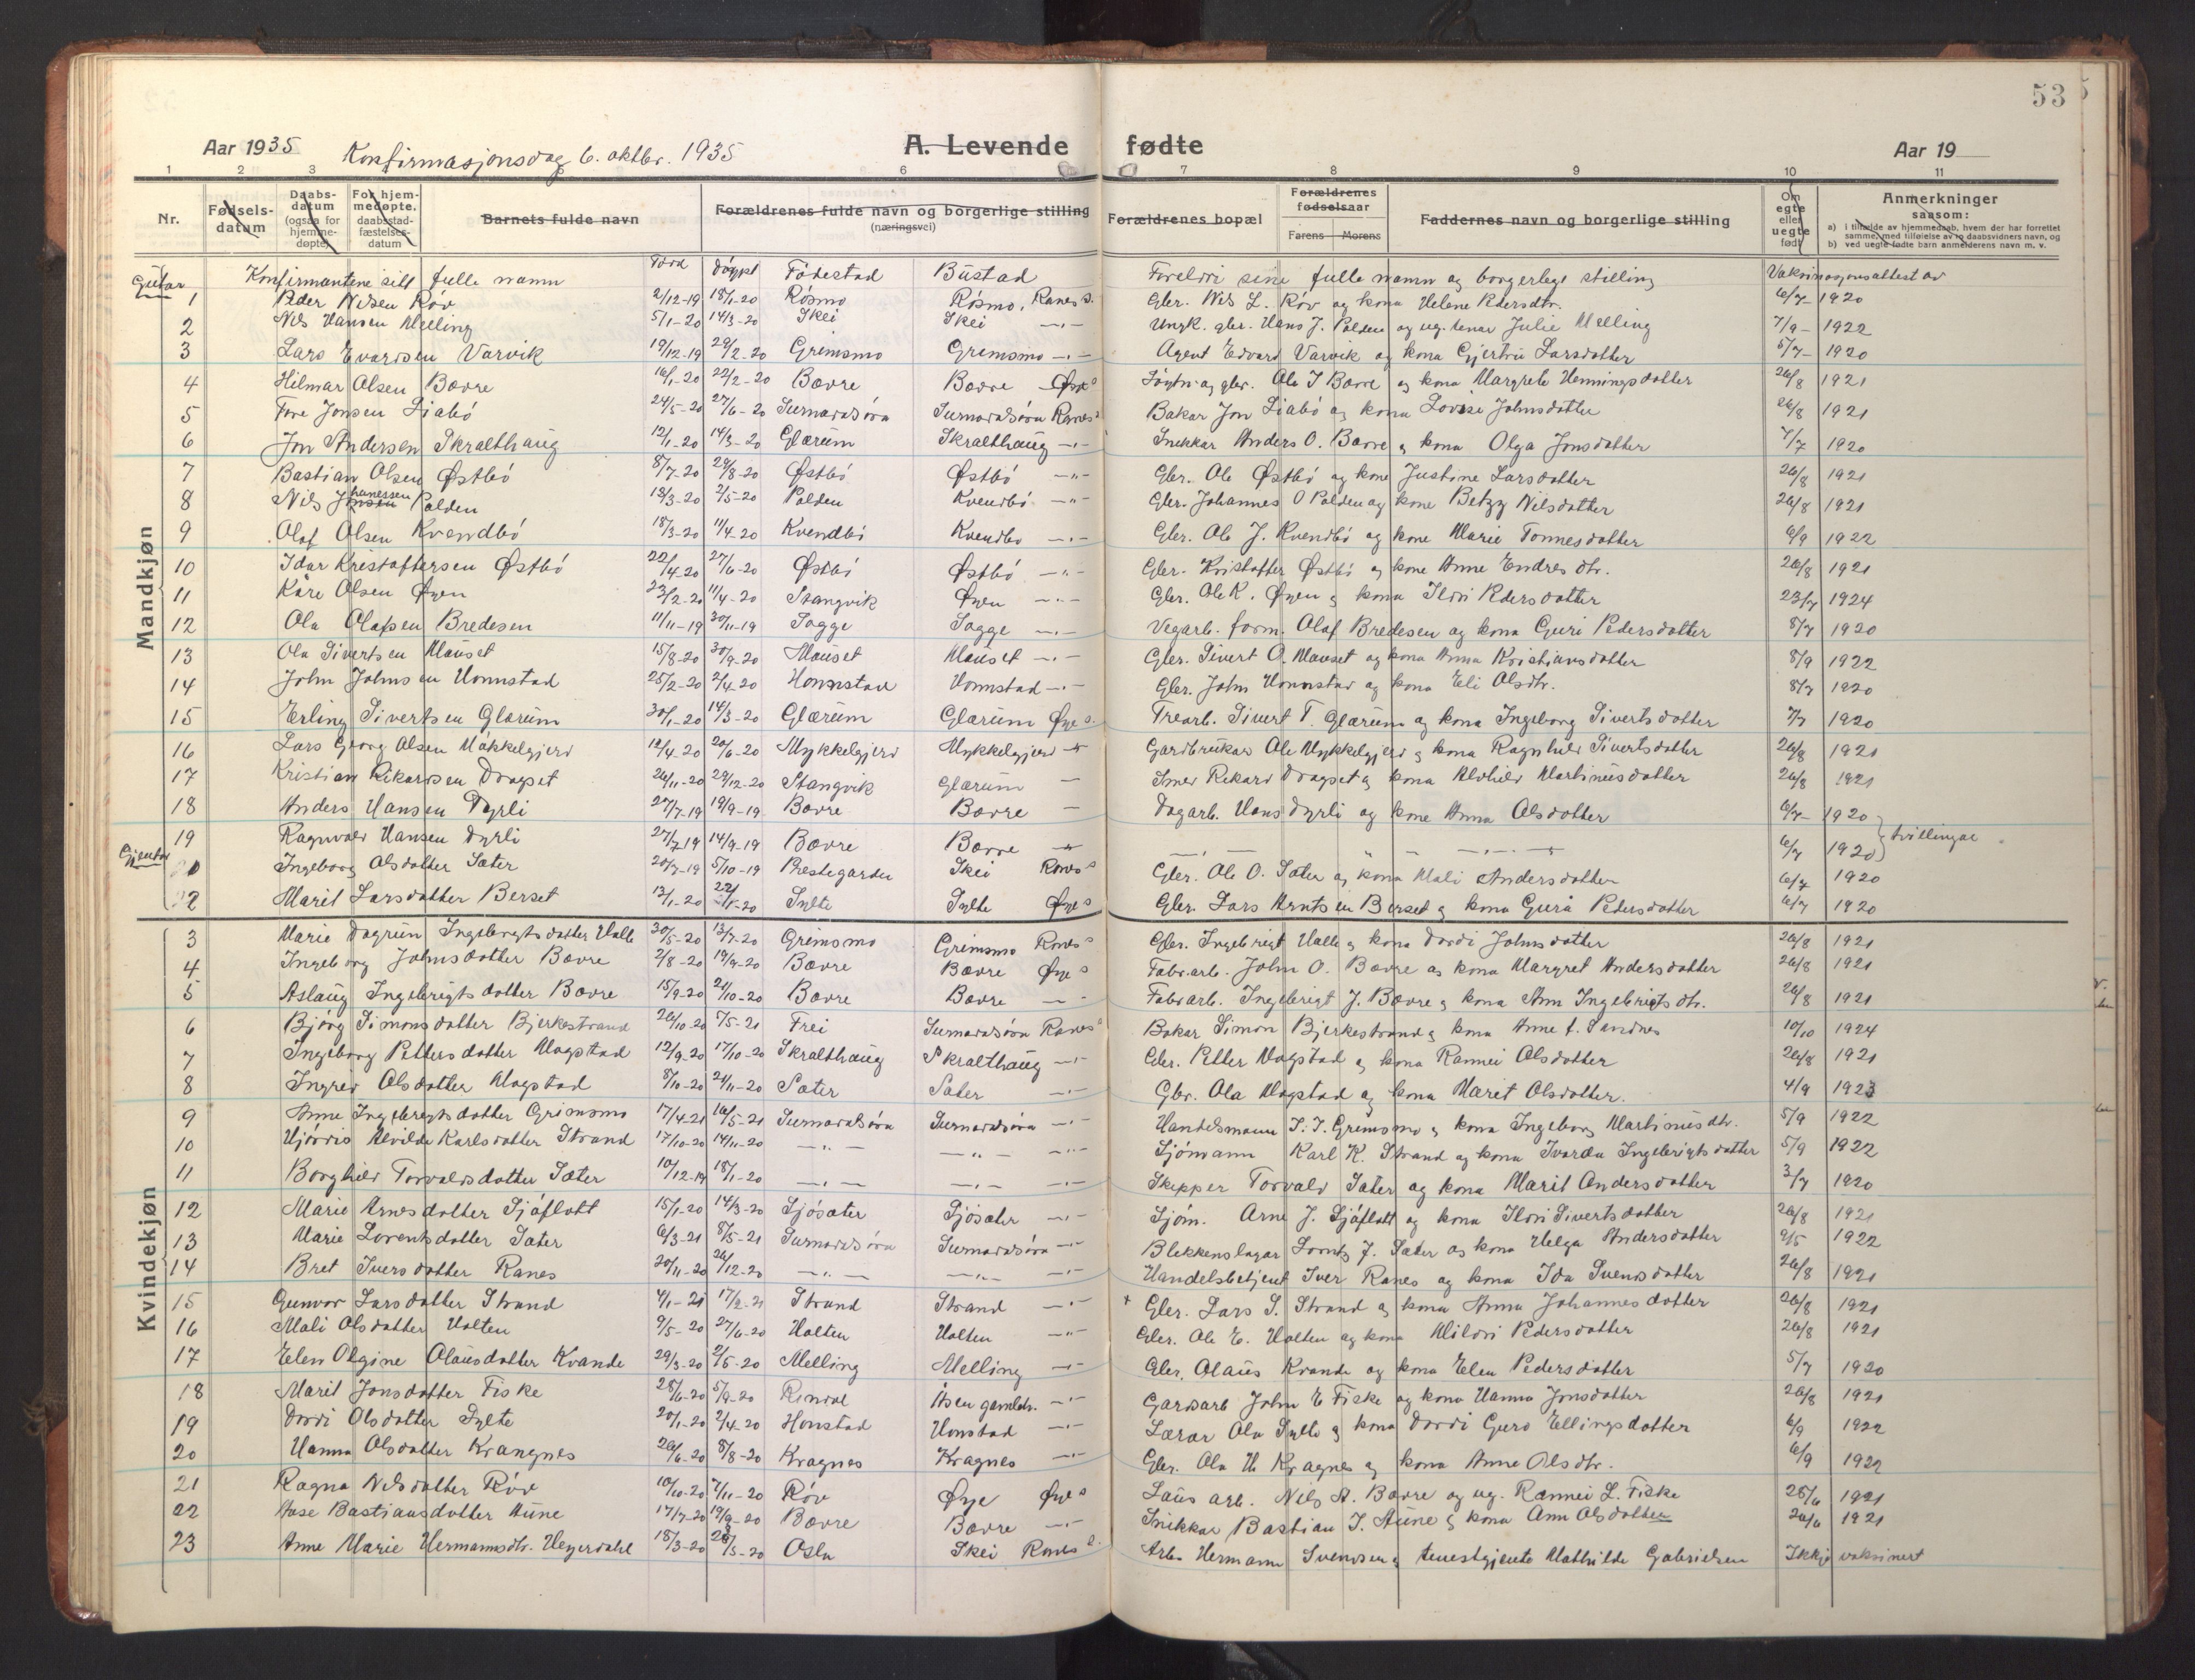 53
Aar 1935 Konfirmasjonsdag 6. oktbr. 1935 A. Levende fødte Aar 19
1 2 3 5 6 7 8 9 10 11
Nr. Fødsels-datum Daabs-datum (ogsaa for hjemme-døpte) For hjem-medøpte. daabsstad-fæstelses-datum Barnets fulde navn Forældrenes fulde navn og borgerlige stilling (næringsvei) Forældrenes bopæl Forældrenes fødselsaar Farens Morens Faddernes navn og borgerlige stilling Om egte eller uegte født Anmerkninger saasom: a) i tilfælde av hjemmedaab, hvem der har forrettet samme, med tilføielse av to daabsvidners navn, og b) ved uegte fødte barn anmelderens navn m. v.
Gutar Konfirmantene sitt fulle namn Född döypt Födestad Bustad Foreldri sine fulle namn og borgerlege stilling Vaksinasjonsattest av
Mandkjøn
1 Peder Nilsen Röv 2/12-19 18/1-20 Rösmo Rösmo, Ranes s. Gbr. Nils L. Röv og kona Helene Pedersdtr. 6/7- 1920
2 Nils Hansen Melling 5/1-20 14/3-20 Skei Skei -"- Ungk. gbr. Hans J. Polden og ug. tenar Julie Melling 7/9- 1922
3 Lars Evardsen Varvik 19/12-19 29/2-20 Grimsmo Grimsmo -"- Agent Edvard Varvik og kona Gjertru Larsdotter 5/7- 1920
4 Hilmar Olsen Bøvre 16/1-20 22/2-20 Bøvre Bøvre Øye s Ole J Bøvre og kona Margrete Henningsdotter 26/8 1921
5 Tore Jonsen Liabö 24/5-20 27/6-20 Surnadalsöra Surnadalsöra Ranes s Bakar Jon Liabö og kona Lovise Johnsdotter 26/8 1921
6 Jon Andersen Skralthaug 12/1-20 14/3-20 Glærum Skralthaug -"- Snekkar Anders O. Bøvre og kona Olga Jonsdotter 7/7 1920
7 Bastian Olsen Østbö 8/7-20 29/8-20 Østbö Østbö -"- Gbr. Ole Østbö og kone Justine Larsdotter 26/8 1921
8 Nils Johanessen Polden 13/3-20 2/5-20 Polden Kvendbö -"- Gbr. Johannes O Polden og kone Betzy Nilsdotter 26/8 1921
9 Olaf Olsen Kvendbö 18/3-20 11/4-20 Kvendbö Kvendbo -"- Gbr. Ole J. Kvendbö og kone Marie Tonnesdotter 6/9 1922
10 Idar Kristoffersen Østbö 22/4-20 27/6-20 Østbö Østbö -"- Gbr. Kristoffer Østbö og kone Anne Endresdtr. 26/8 1921
11 Kåre Olsen Øyen 23/2-20 11/4-20 Stangvik Øyen -"- Gbr. Ole K. Øyen og kona Ildri Pedersdotter 23/7 1924
12 Ola Olafsen Bredesen 11/11-19 30/11-19 Sogge Sogge -"- Vegarb. form. Olaf Bredesen og kona Guri Pedersdotter 8/7 1920
13 Ola Sivertsen Mauset 15/8-20 30/9-20 Mauset Mauset -"- Gbr. Sivert O. Mauset og kona Anna Kristiansdotter 8/9 1922
14 John Johnsen Honnstad 25/2-20 2/4-20 Honnstad Honnstad -"- Gbr. John Honnstad og kona Eli Olsdtr. 8/7 1920
15 Erling Sivertsen Glærum 30/1-20 14/3-20 Glærum Glærum Øye s. Trearb. Sivert T. Glærum og kona Ingeborg Sivertsdotter 7/7 1920
16 Lars Georg Olsen Mökkelgjerd 12/4-20 20/6-20 Mykkelgjerd Mykkelgjerd -"- Gardbrukar Ole Mykkelgjerd og kona Ragnhild Sivertsdotter 26/8 1921
17 Kristian Rikardsen Dragset 26/11-20 29/12-20 Stangvik Glærum - Smed Rikard Dragset og kona Alvhild Martinusdotter 26/8 1921
18 Anders Hansen Dyrli 27/7-19 19/9-19 Bøvre Bøvre - Dagarb. Hans Dyrli og kone Anna Olsdotter 6/7- 1920
19 Ragnvald Hansen Dyrli 27/7-19 14/9-19 Bøvre Bøvre -"- -"- -"- 6/7 1920 tvillingar
Gjentor
Ingeborg Olsdotter Sæter 20/7-19 5/10-19 Prestegarden Skei Ranes s Gbr. Ole O. Sæter og kona Mali Andersdotter 6/7 1920
2 Marit Larsdotter Berset 13/1-20 22/1-20 Sylte Sylte Øye s Gbr. Lars Arntsen Berset og kona Gura Pedersdotter 6/7 1920
Kvindekjøn
3 Marie Dagrun Ingebrigtsdotter Halle 30/5-20 13/7-20 Grimsmo Grimsmo Ranes s Gbr. Ingebrigt Halle og kona Dordi Johnsdotter 26/8 1921
4 Ingeborg Johnsdotter Bøvre 2/8-20 19/9-20 Bøvre Bøvre Øye s Fabr.arb. John O. Bøvre og kona Margret Andersdotter 26/8 1921
5 Aslaug Ingebrigtsdotter Bøvre 15/9-20 21/10-20 Bøvre Bøvre -"- Fabrarb. Ingebrigt J. Bøvre og kona Ann Ingebrigtsdtr. 26/8 1921
6 Bjørg Simonsdotter Bjerkestrand 26/10-20 7/5-21 Frei Surnadalsöra Ranes s Bakar Simon Bjerkestrand og kona Anne f. Sandnes 10/10 1924
7 Ingeborg Pettersdotter Magstad 12/9-20 17/10-20 Skralthaug Skralthaug -"- Gbr. Petter Magstad og kona Rannei Olsdotter 26/8 1921
8 Ingrid Olsdotter Magstad 8/10-20 24/11-20 Sæter Sæter -"- Gbr. Ola Magstad og kona Marit Olsdotter. 4/9 1923
9 Anne Ingebrigtsdotter Grimsmo 17/4-21 16/5-21 Surnadalsöra Surnadalsöra -"- Handelsmann I. I. Grimsmo og kona Ingeborg Martinusdtr. 5/9 1922
10 Hjördis Alvilde Karlsdotter Strand 17/10-20 14/11-20 -"- -"- -"- Sjömann Karl K. Strand og kona Ivarda Ingebrigtsdotter 5/9 1922
11 Borghild Torvaldsdotter Sæter 10/12-19 18/1-20 -"- -"- -"- Skipper Torvald Sæter og kona Marit Andersdotter 3/7 1920
12 Marie Arnesdotter Sjöflott 15/1-20 14/3-20 Sjösæter Sjösæter -"- Sjöm. Arne J. Sjöflott og kona Ildri Sivertsdotter 26/8 1921
13 Marie Lorentsdotter Sæter 6/3-21 8/5-21 Surnadalsöra Surnadalsöra -"- Blekkenslagar Lorents J. Sæter og kona Helga Andersdotter 9/5 1922
14 Bret Iversdotter Ranes 20/11-20 26/12-20 -"- -"- -"- Handelsbetjent Iver Ranes og kona Ida Svensdotter 26/8 1921
15 Gunvor Larsdotter Strand 4/1-21 17/2-21 Strand Strand -"- Gbr. Lars S. Strand og kona Anna Johannesdotter 26/8 1921
16 Mali Olsdotter Holten 9/5-20 27/6-20 Holten Holten -"- Gbr. Ole E. Holten og kona Mildri Pedersdotter 26/8 1921
17 Elen Olgine Olausdotter Kvande 29/3-20 2/5-20 Melling Melling -"- Gbr. Olaus Kvande og kona Elen Pedersdotter 5/7 1920
18 Marit Jonsdotter Fiske 28/6-20 5/9-20 Rindal Åsen gamleh. -"- Gardarb John E Fiske og kona Hanna Jonsdotter 26/8 1921
19 Dordi Olsdotter Sylte 20/1-20 2/4-20 Honstad Honstad -"- Lærar Ola Sylte og kona Dordi Guro Ellingsdotter 6/9 1922
20 Hanna Olsdotter Krangnes 26/6-20 8/8-20 Kragnes Kragnes -"- Gbr. Ola H Kragnes og kona Anne Olsdtr. 6/9 1922
21 Ragna Nilsdotter Röv 10/10-20 7/11-20 Röv Øye Øye s Laus arb. Nils A. Bøvre og ug. Rannei L. Fiske 28/6 1921
22 Aase Bastiansdotter Aune 17/7-20 19/9-20 Bøvre Bøvre -"- Snikkar Bastian J. Aune og kona Ann Olsdotter 26/6 1921
23 Anne Marie Hermannsdtr. Heyerdahl 18/3-20 28/5-20 Oslo Skei Ranes s. Arb. Hermann Svendsen og tenestgjente Mathilde Gabrielsen Ikkje vaksinert